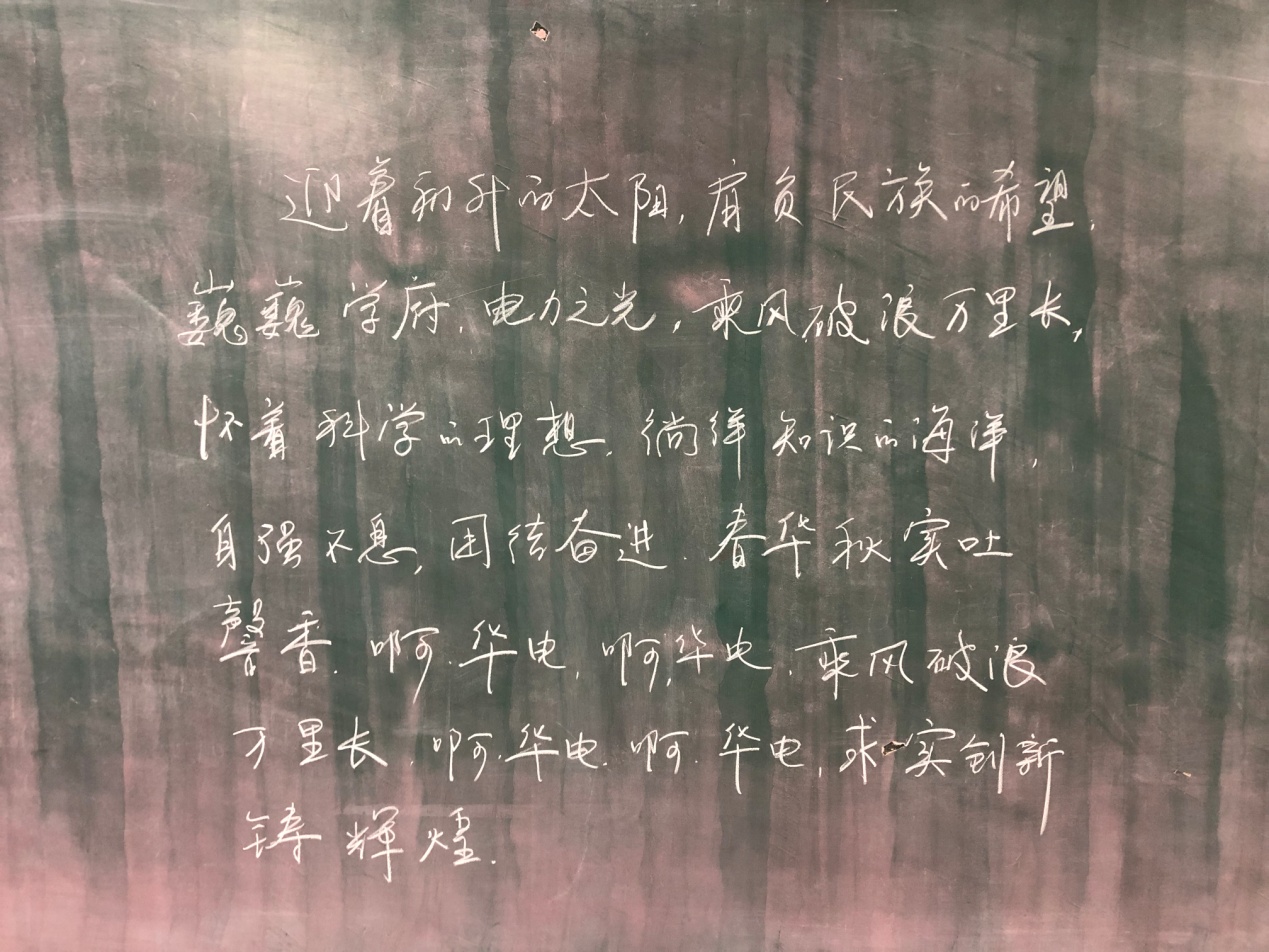 迎着初升的太阳,肩负民族的希望,
巍巍学府,电力之光,乘风破浪万里长,
怀着科学的理想,徜徉知识的海洋,
自强不息,团结奋进,春华秋实吐
馨香,啊,华电,啊,华电,乘风破浪
万里长,啊,华电,啊,华电,求实创新
铸辉煌.